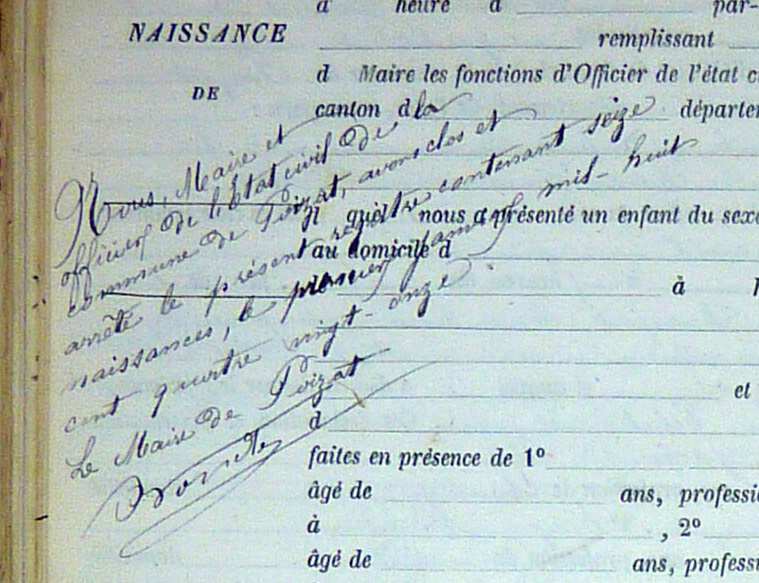 à heure d par-
NAISSANCE
remplissant
d Maire les fonctions d'Officier de l'état c
DE
canton d départe
Nous, Maire et
officier de l'état civil de la
commune de Poizat, avons clos et
arrêté le présent registre contenant seize
naissances, le premier janvier mil-huit
cent quatre vingt-onze.
Le Maire de Poizat
Il qu'el nous a présenté un enfant du sexe
au domicile d
à
et
d
faites en présence de 1º
âgé de ans, professi
à , 2º
âgé de ans, profess